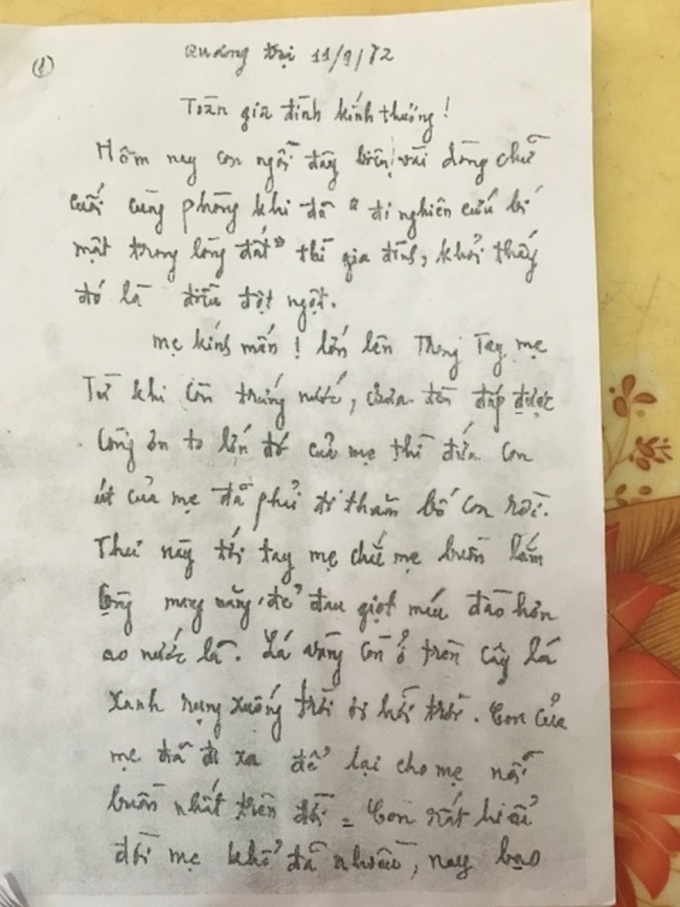 (1)
Quảng trị 11/9/72
Toàn gia đình kính thương!
Hôm nay con ngồi đây biên vài dòng chữ
cuối cùng phòng khi đã "đi nghiên cứu bí
mật trong lòng đất" thì gia đình, khỏi thấy
đó là điều đột ngột.
Mẹ kính mến! lớn lên Trong Tay mẹ
Từ khi còn trứng nước, chưa đền đáp được
công ơn to lớn đó của mẹ thì đứa con
út của mẹ đã phải đi thăm bố con rồi.
Thư này tới tay mẹ chắc mẹ buồn lắm
lòng mang nặng, đẻ đau giọt máu đào hơn
ao nước lã. Lá vàng còn ở trên cây lá
xanh rụng xuống trời ơi hỡi trời. Con của
mẹ đã đi xa để lại cho mẹ nỗi
buồn nhất trên đời = Con rất hiểu
đời mẹ khổ đã nhiều, nay bao